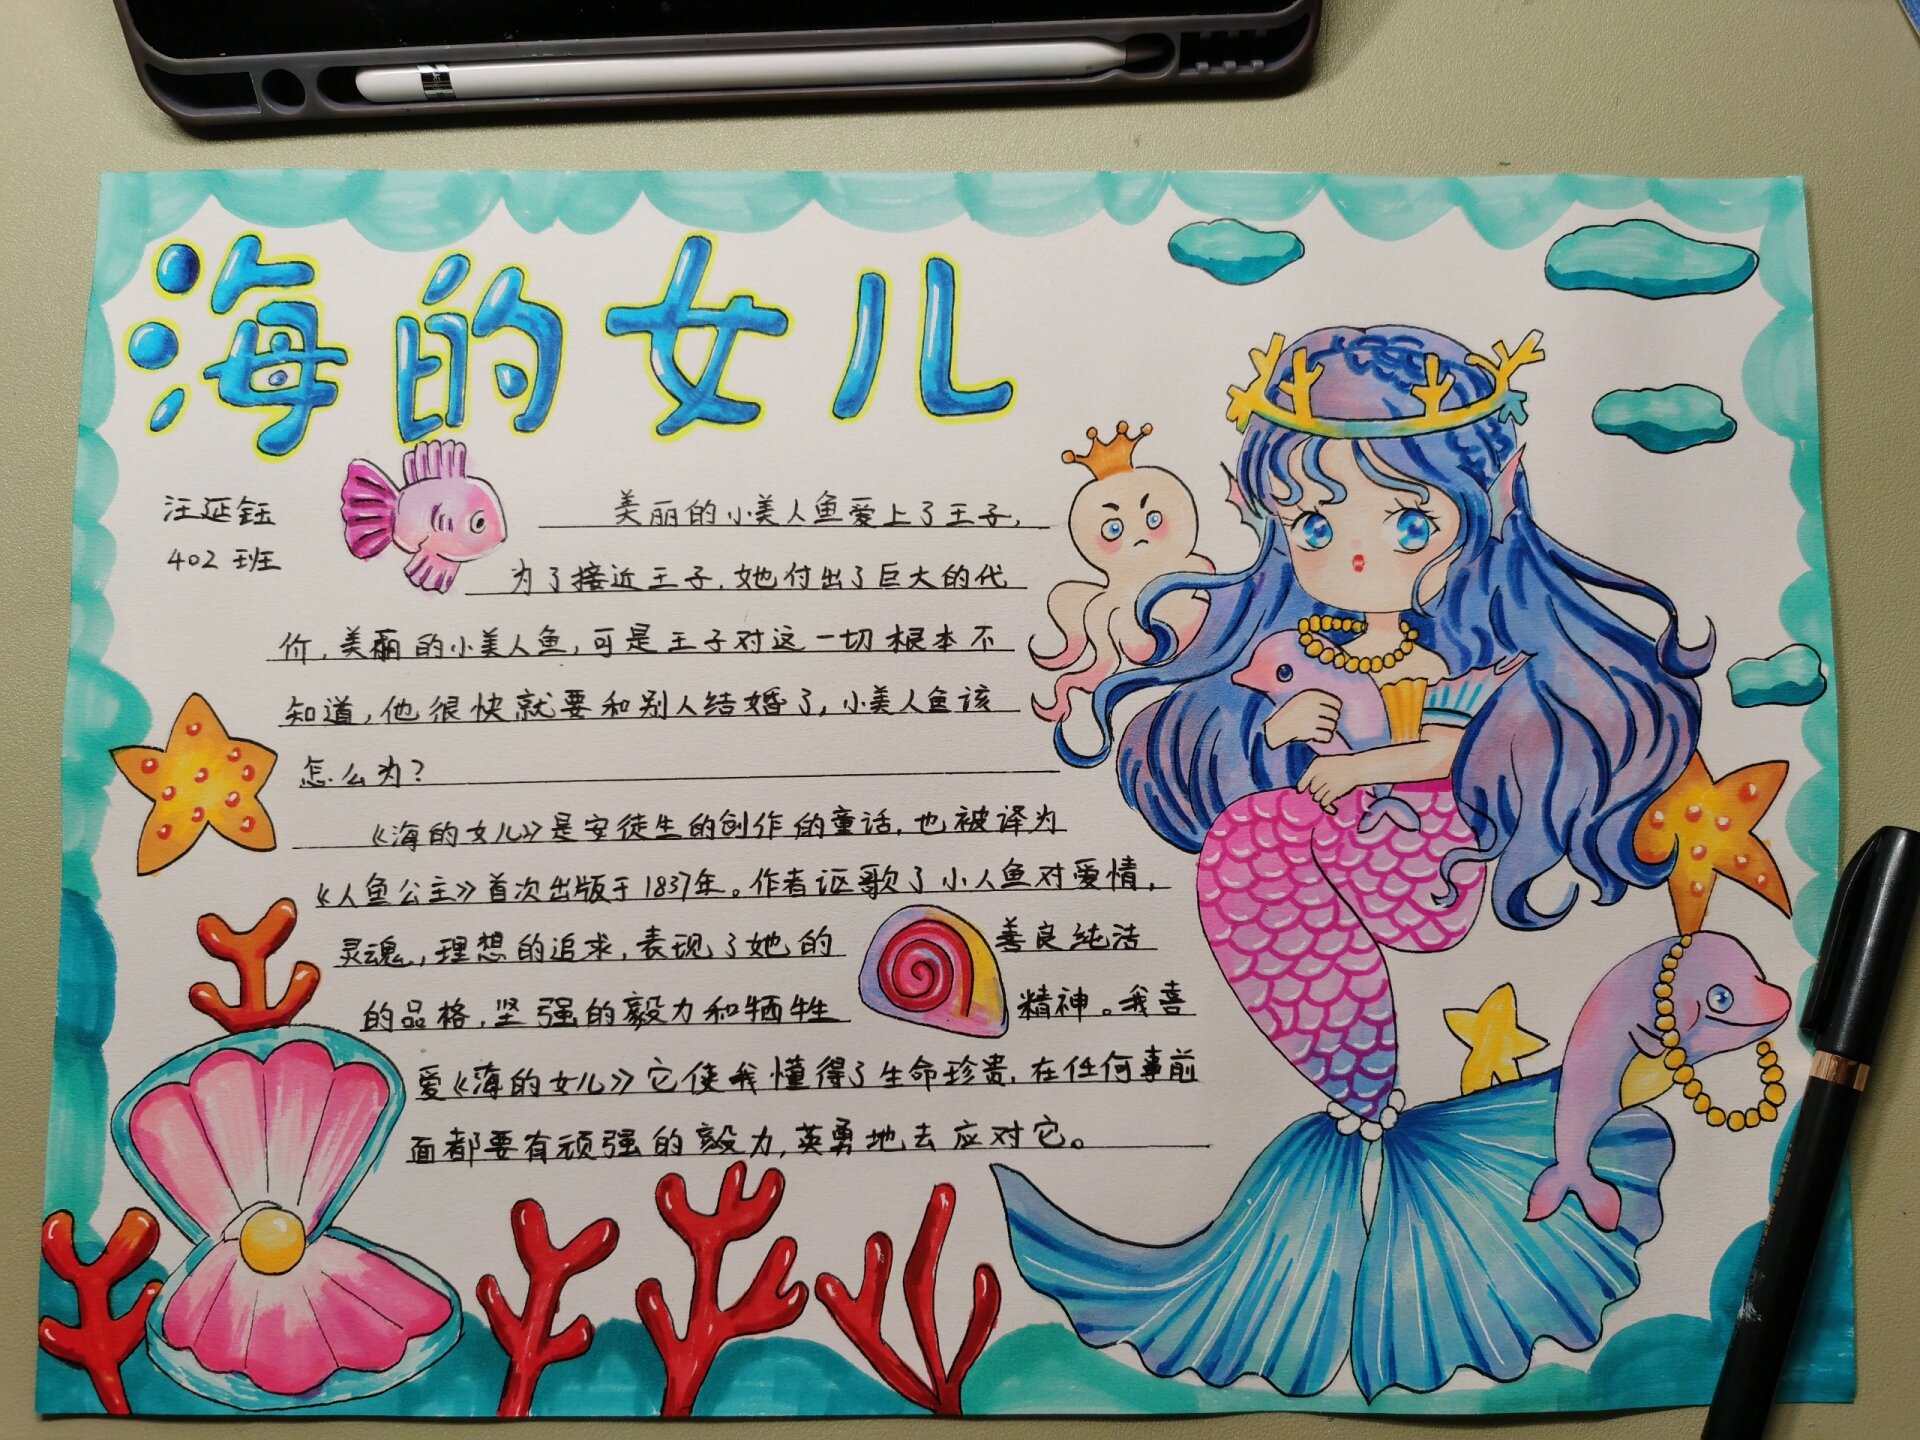 海的女儿
汪延钰
402班
美丽的小美人鱼爱上了王子,
为了接近王子,她付出了巨大的代
价,美丽的小美人鱼,可是王子对这一切根本不
知道,他很快就要和别人结婚了,小美人鱼该
怎么为?
《海的女儿》是安徒生的创作的童话,也被译为
《人鱼公主》首次出版于1837年。作者讴歌了小人鱼对爱情,
灵魂,理想的追求,表现了她的善良纯洁
的品格,坚强的毅力和牺牲精神。我喜
爱《海的女儿》它使我懂得了生命珍贵,在任何事前
面都要有顽强的毅力,英勇地去应对它。